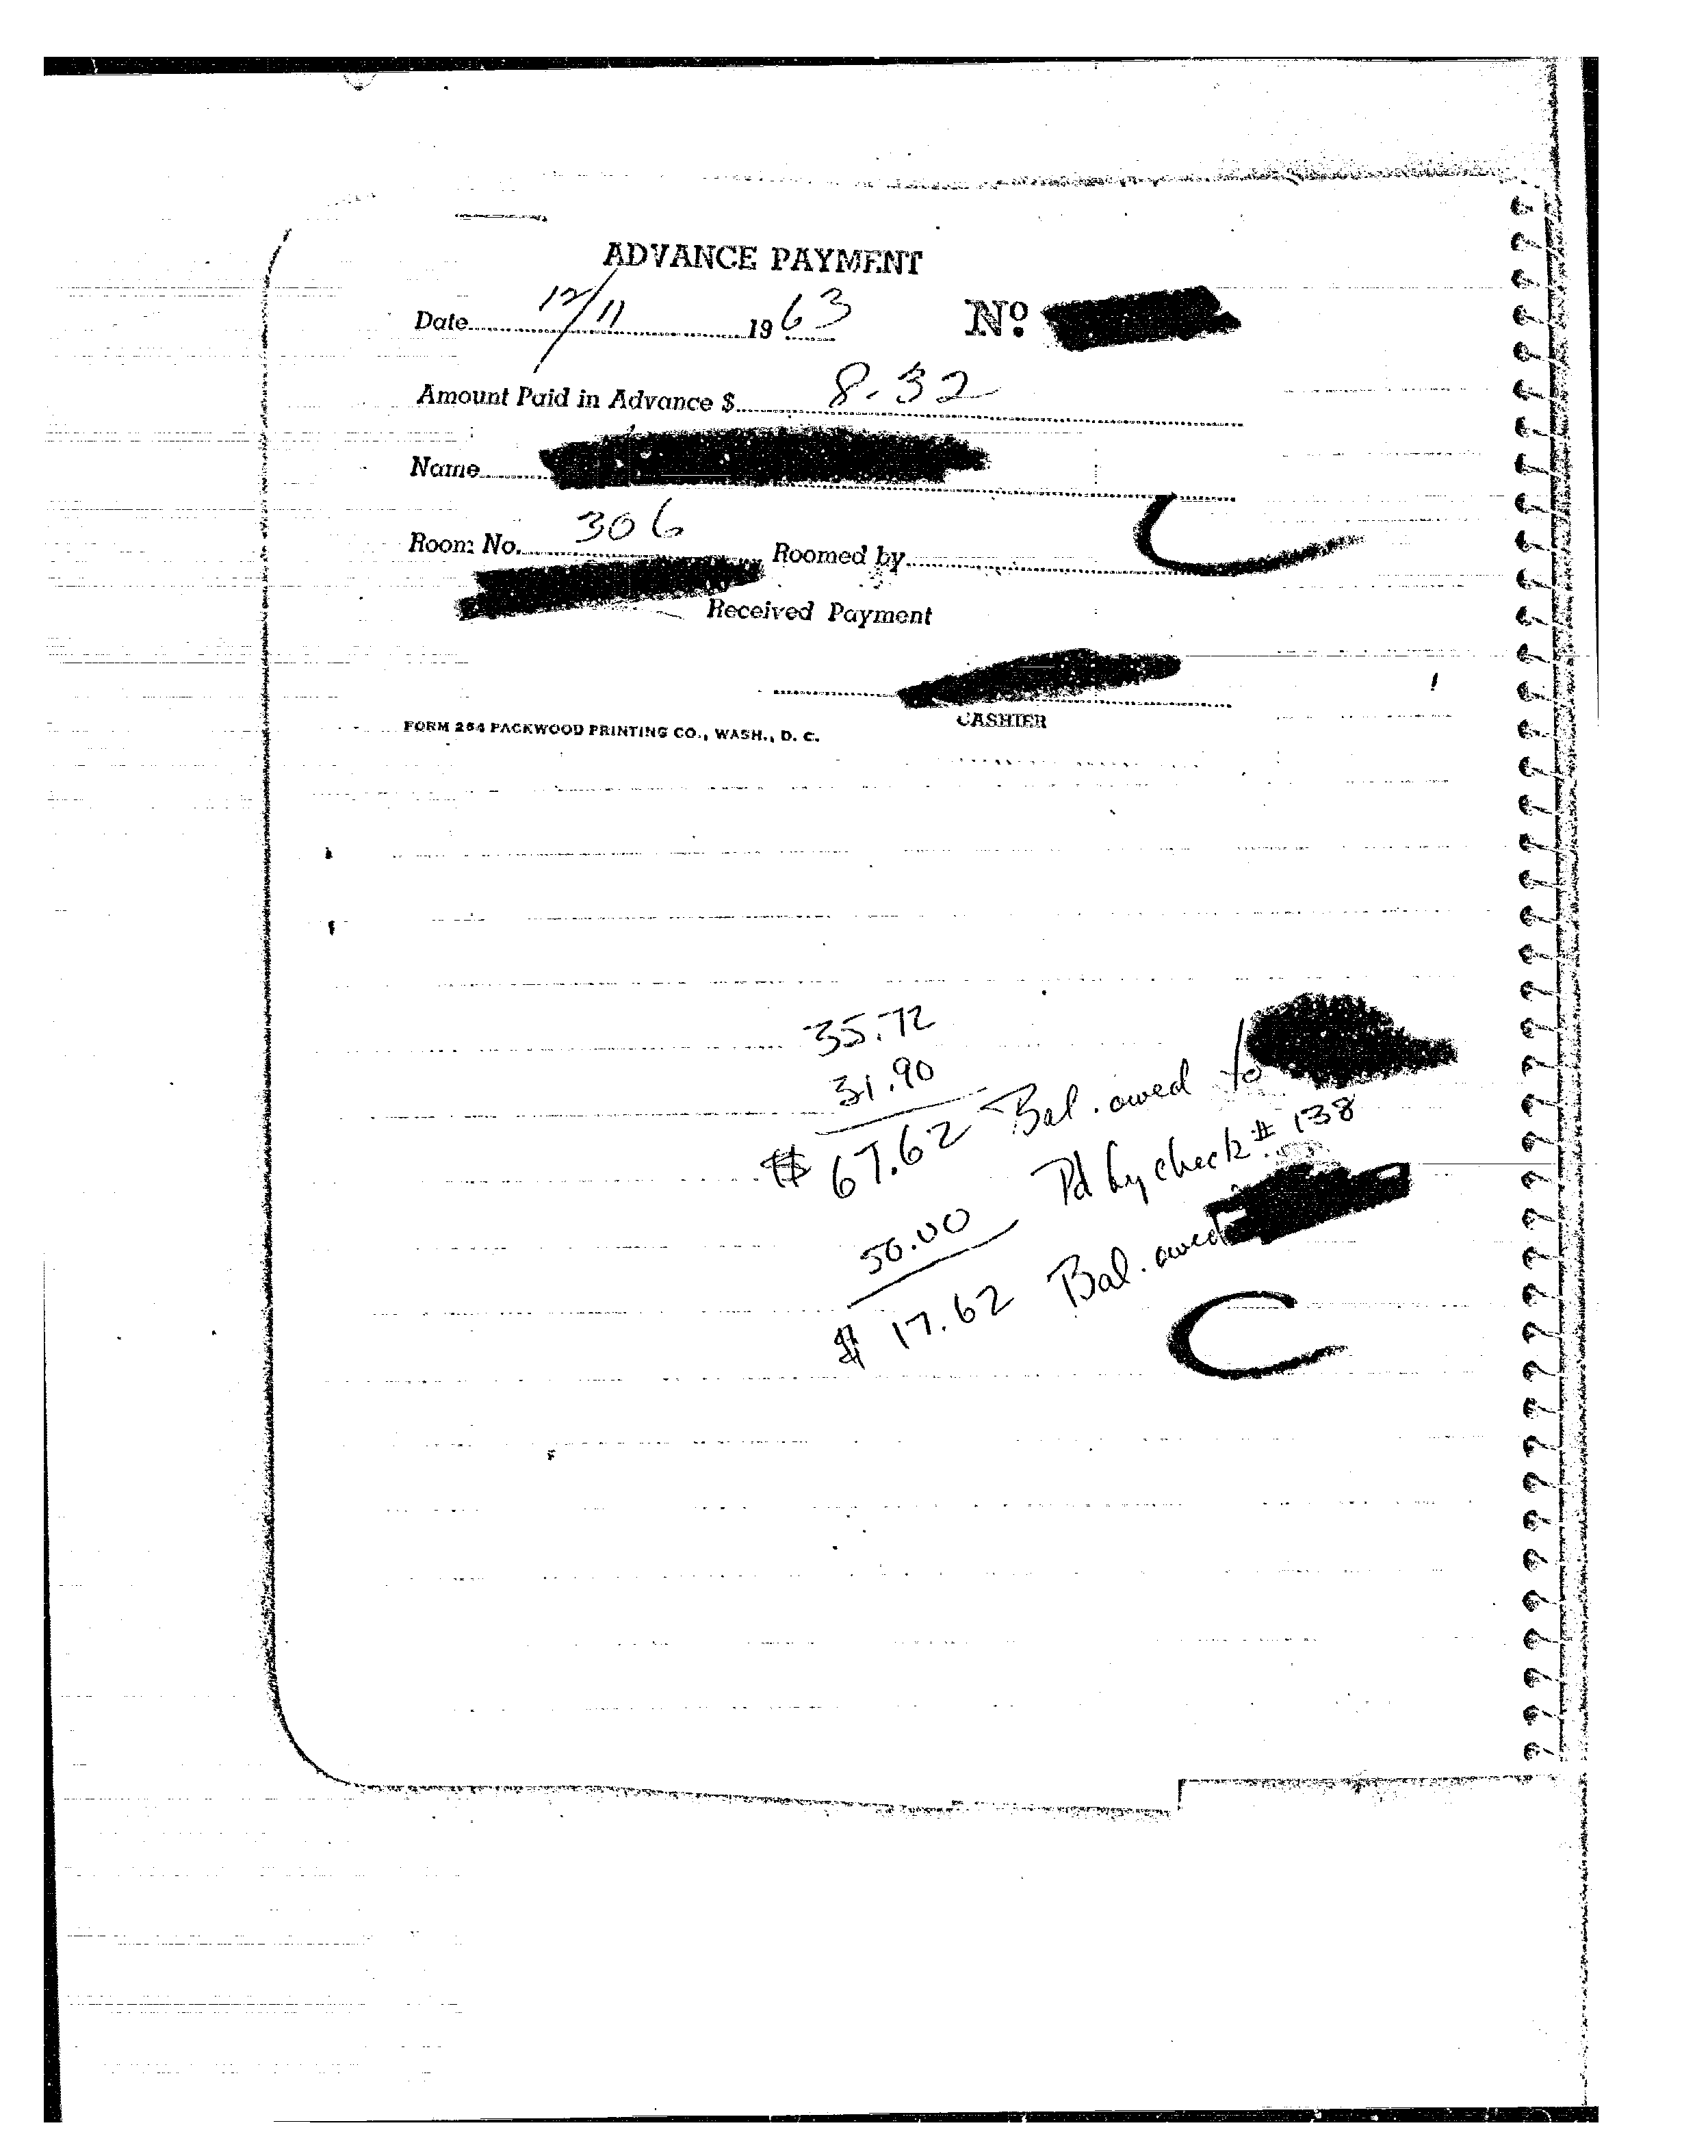 ADVANCE PAYMENT
Date 12/11 1963 No.
Amount Paid in Advance $ 8.32
Name
Room No. 306 Roomed by C
Received Payment
CASHIER
FORM 264 PACKWOOD PRINTING CO., WASH., D. C.
35.72
31.90
$ 67.62 Bal. owed to
50.00 Pd by check # 138
$ 17.62 Bal. owed
C